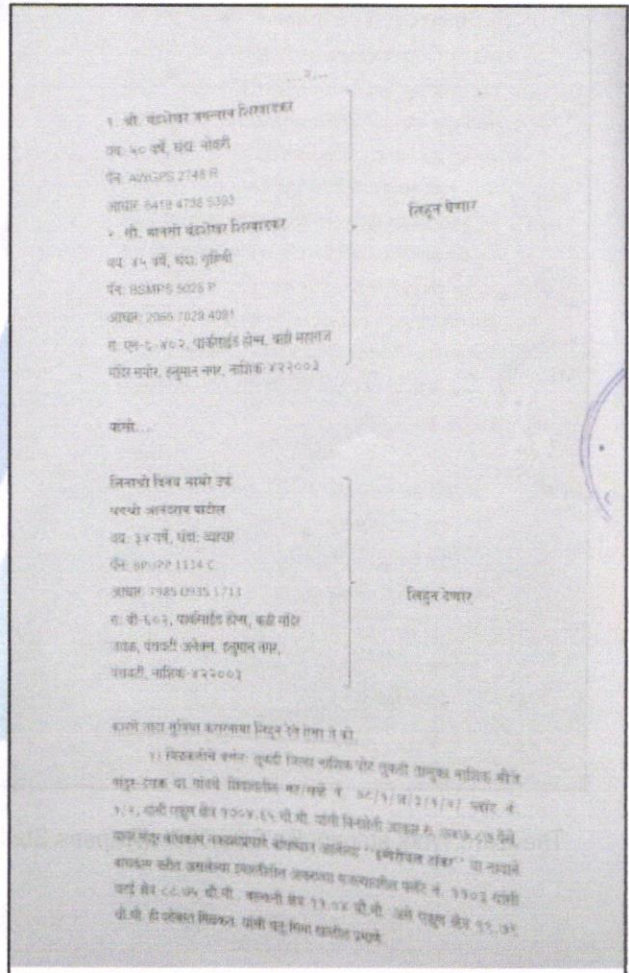 ...२...
१. श्री. चंद्रशेखर जगन्नाथ शिरवाडकर
वय: ५० वर्षे, धंदा: नोकरी
पॅन: AWGPS 2748 R
आधार: 6418 4738 5393
२. सौ. मानसी चंद्रशेखर शिरवाडकर
वय: ४५ वर्षे, धंदा: गृहिणी
पॅन: BSMPS 5025 P
आधार: 2066 7829 4091
रा: एन-८-४०२, पार्कसाईड होम्स, बळी महाराज
मंदिर समोर, हनुमान नगर, नाशिक-४२२००३
लिहून घेणार
यांसी...
विनय उर्फ
आनंदराव पाटील
वय: ३४ वर्षे, धंदा: व्यापार
पॅन: 1114 C
आधार: 7985 0935 1711
रा: बी-६०२, पार्कसाईड होम्स, बळी मंदिर
जवळ, पंचवटी अनेक्स, हनुमान नगर,
पंचवटी, नाशिक-४२२००३
लिहून देणार
कारणे जादा सुविधा करारनामा लिहून देते ऐसा जे की,
१) मिळकतीचे वर्णन: तुकडी जिल्हा नाशिक पोट तुकडी तालुका नाशिक मौजे
या गावचे शिवारातील प्लॉट नं.
यांसी एकूण क्षेत्र १७०४.६५ चौ.मी. यांसी बिनशेती आकार रु. पैसे
यावर मंजूर बांधकाम नकाशाप्रमाणे बांधण्यात आलेल्या या नावाने
बांधकाम करीत असलेल्या इमारतीतील अकराव्या मजल्यावरील फ्लॅट नं. ११०३ यांसी
चटई क्षेत्र ८८.७५ चौ.मी. बाल्कनी क्षेत्र ११.०४ चौ.मी. असे एकूण क्षेत्र ९९.७९
चौ.मी. ही मिळकत. यांसी चतु:सिमा खालील प्रमाणे